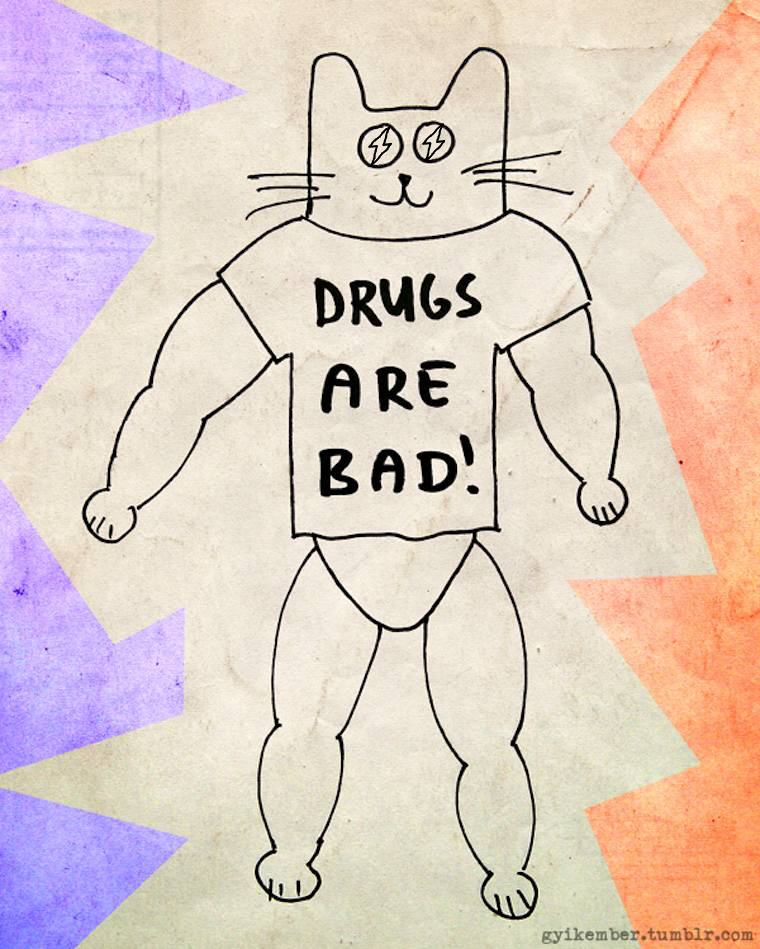 DRUGS
ARE
BAD!
gyikember.tumblr.com